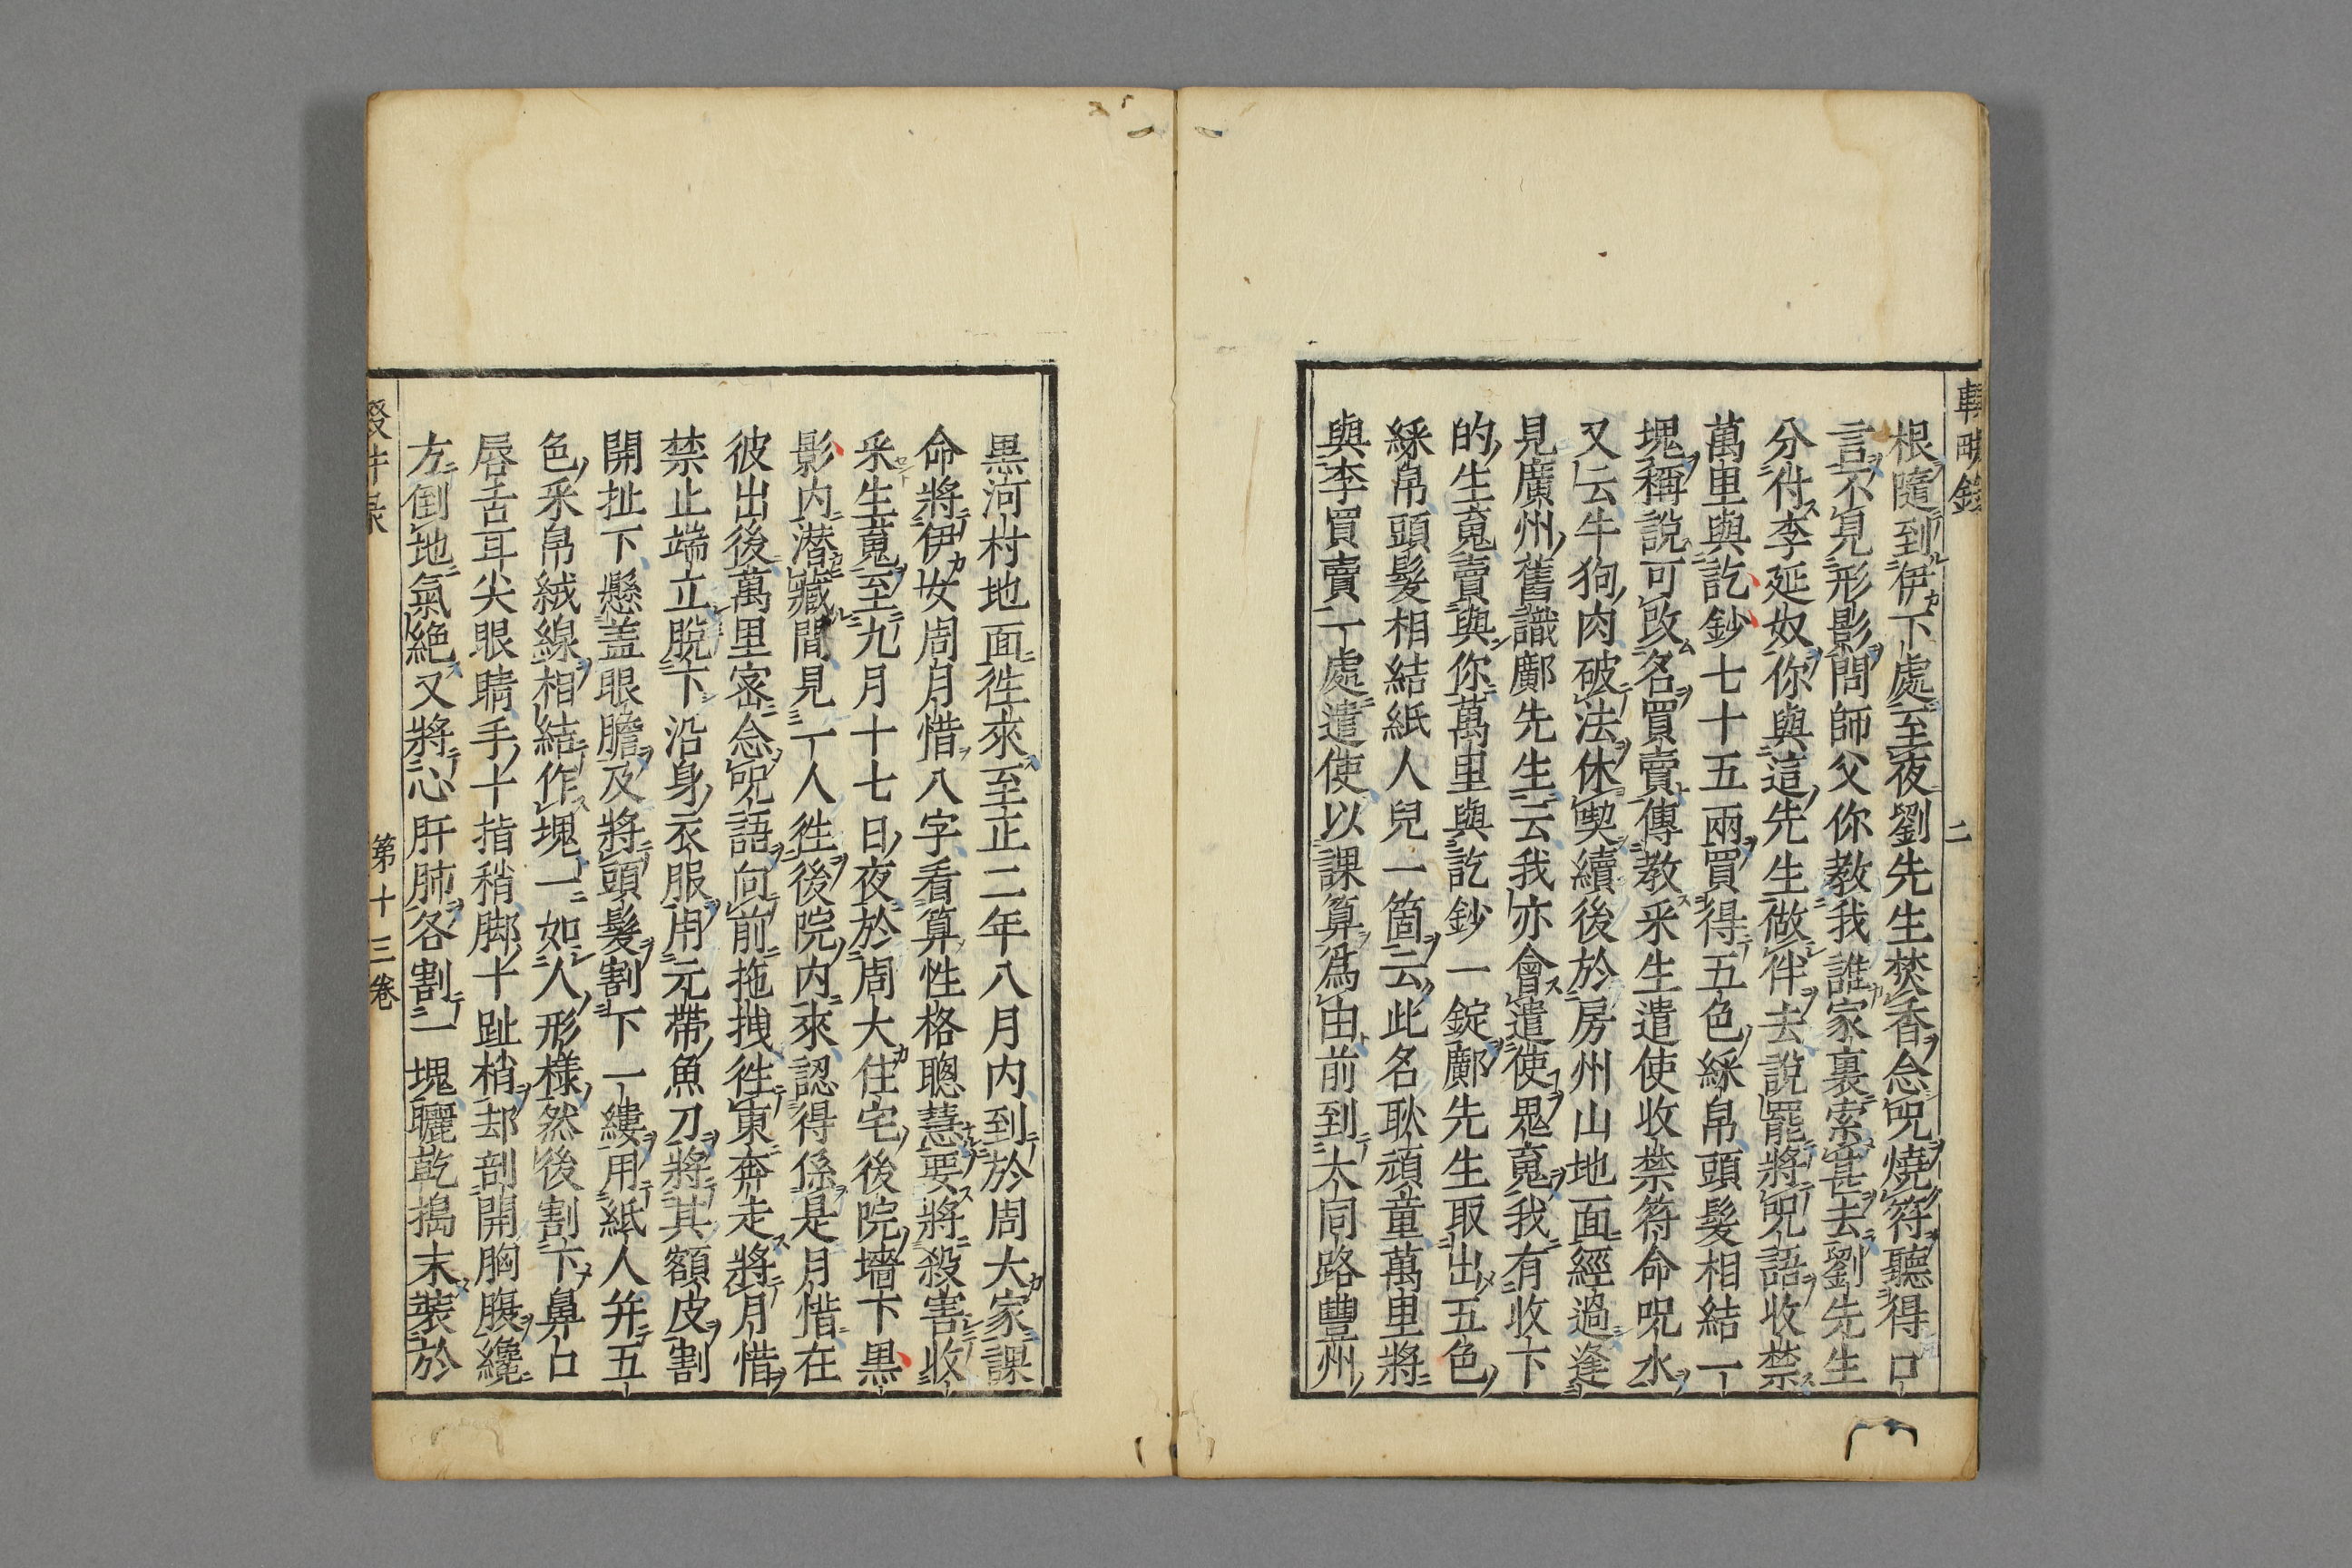 輟畊錄
二
根隨到伊下處至夜劉先生焚香念咒燒符聽得口
言不見形影問師父你教我誰家裏索甚去劉先生
分付李延奴你與這先生做伴去說罷將咒語收禁
萬里與訖鈔七十五兩買得五色綵帛頭髮相結一
塊稱說可改名買賣傳教采生遣使收禁符命咒水
又云牛狗肉破法休喫續後於房州山地面經過逢
見廣州舊識鄺先生云我亦會遣使鬼䰟我有收下
的生䰟賣與你萬里與訖鈔一錠鄺先生取出五色
綵帛頭髮相結紙人兒一箇云此名耿頑童萬里將
與李買賣一處遣使以課算爲由前到大同路豐州
黒河村地面徃來至正二年八月内到於周大家課
命將伊女周月惜八字看算性格聰慧要將殺害收
采生䰟至九月十七日夜於周大住宅後院墻下黒
影内潜藏間見一人徃後院内來認得係是月惜在
彼出後萬里宻念咒語向前拖拽徃東奔走將月惜
禁止端立脫下沿身衣服用元帶魚刀將其額皮割
開扯下懸盖眼睛及將頭髮割下一縷用紙人并五
色采帛絨線相結作塊一如人形樣然後割下鼻口
唇舌耳尖眼睛手十指稍脚十趾梢却剖開胸腹纔
方倒地氣絶又將心肝肺各割一塊曬乾搗末裝於
輟畊录
第十三卷